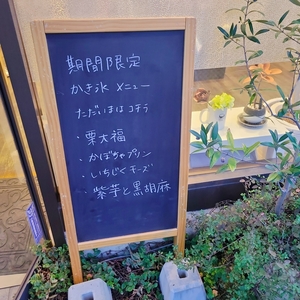 期間限定
かき氷 メニュー
ただいまは コチラ
・栗大福
・かぼちゃプリン
・いちじくチーズ
・紫芋と黒胡麻